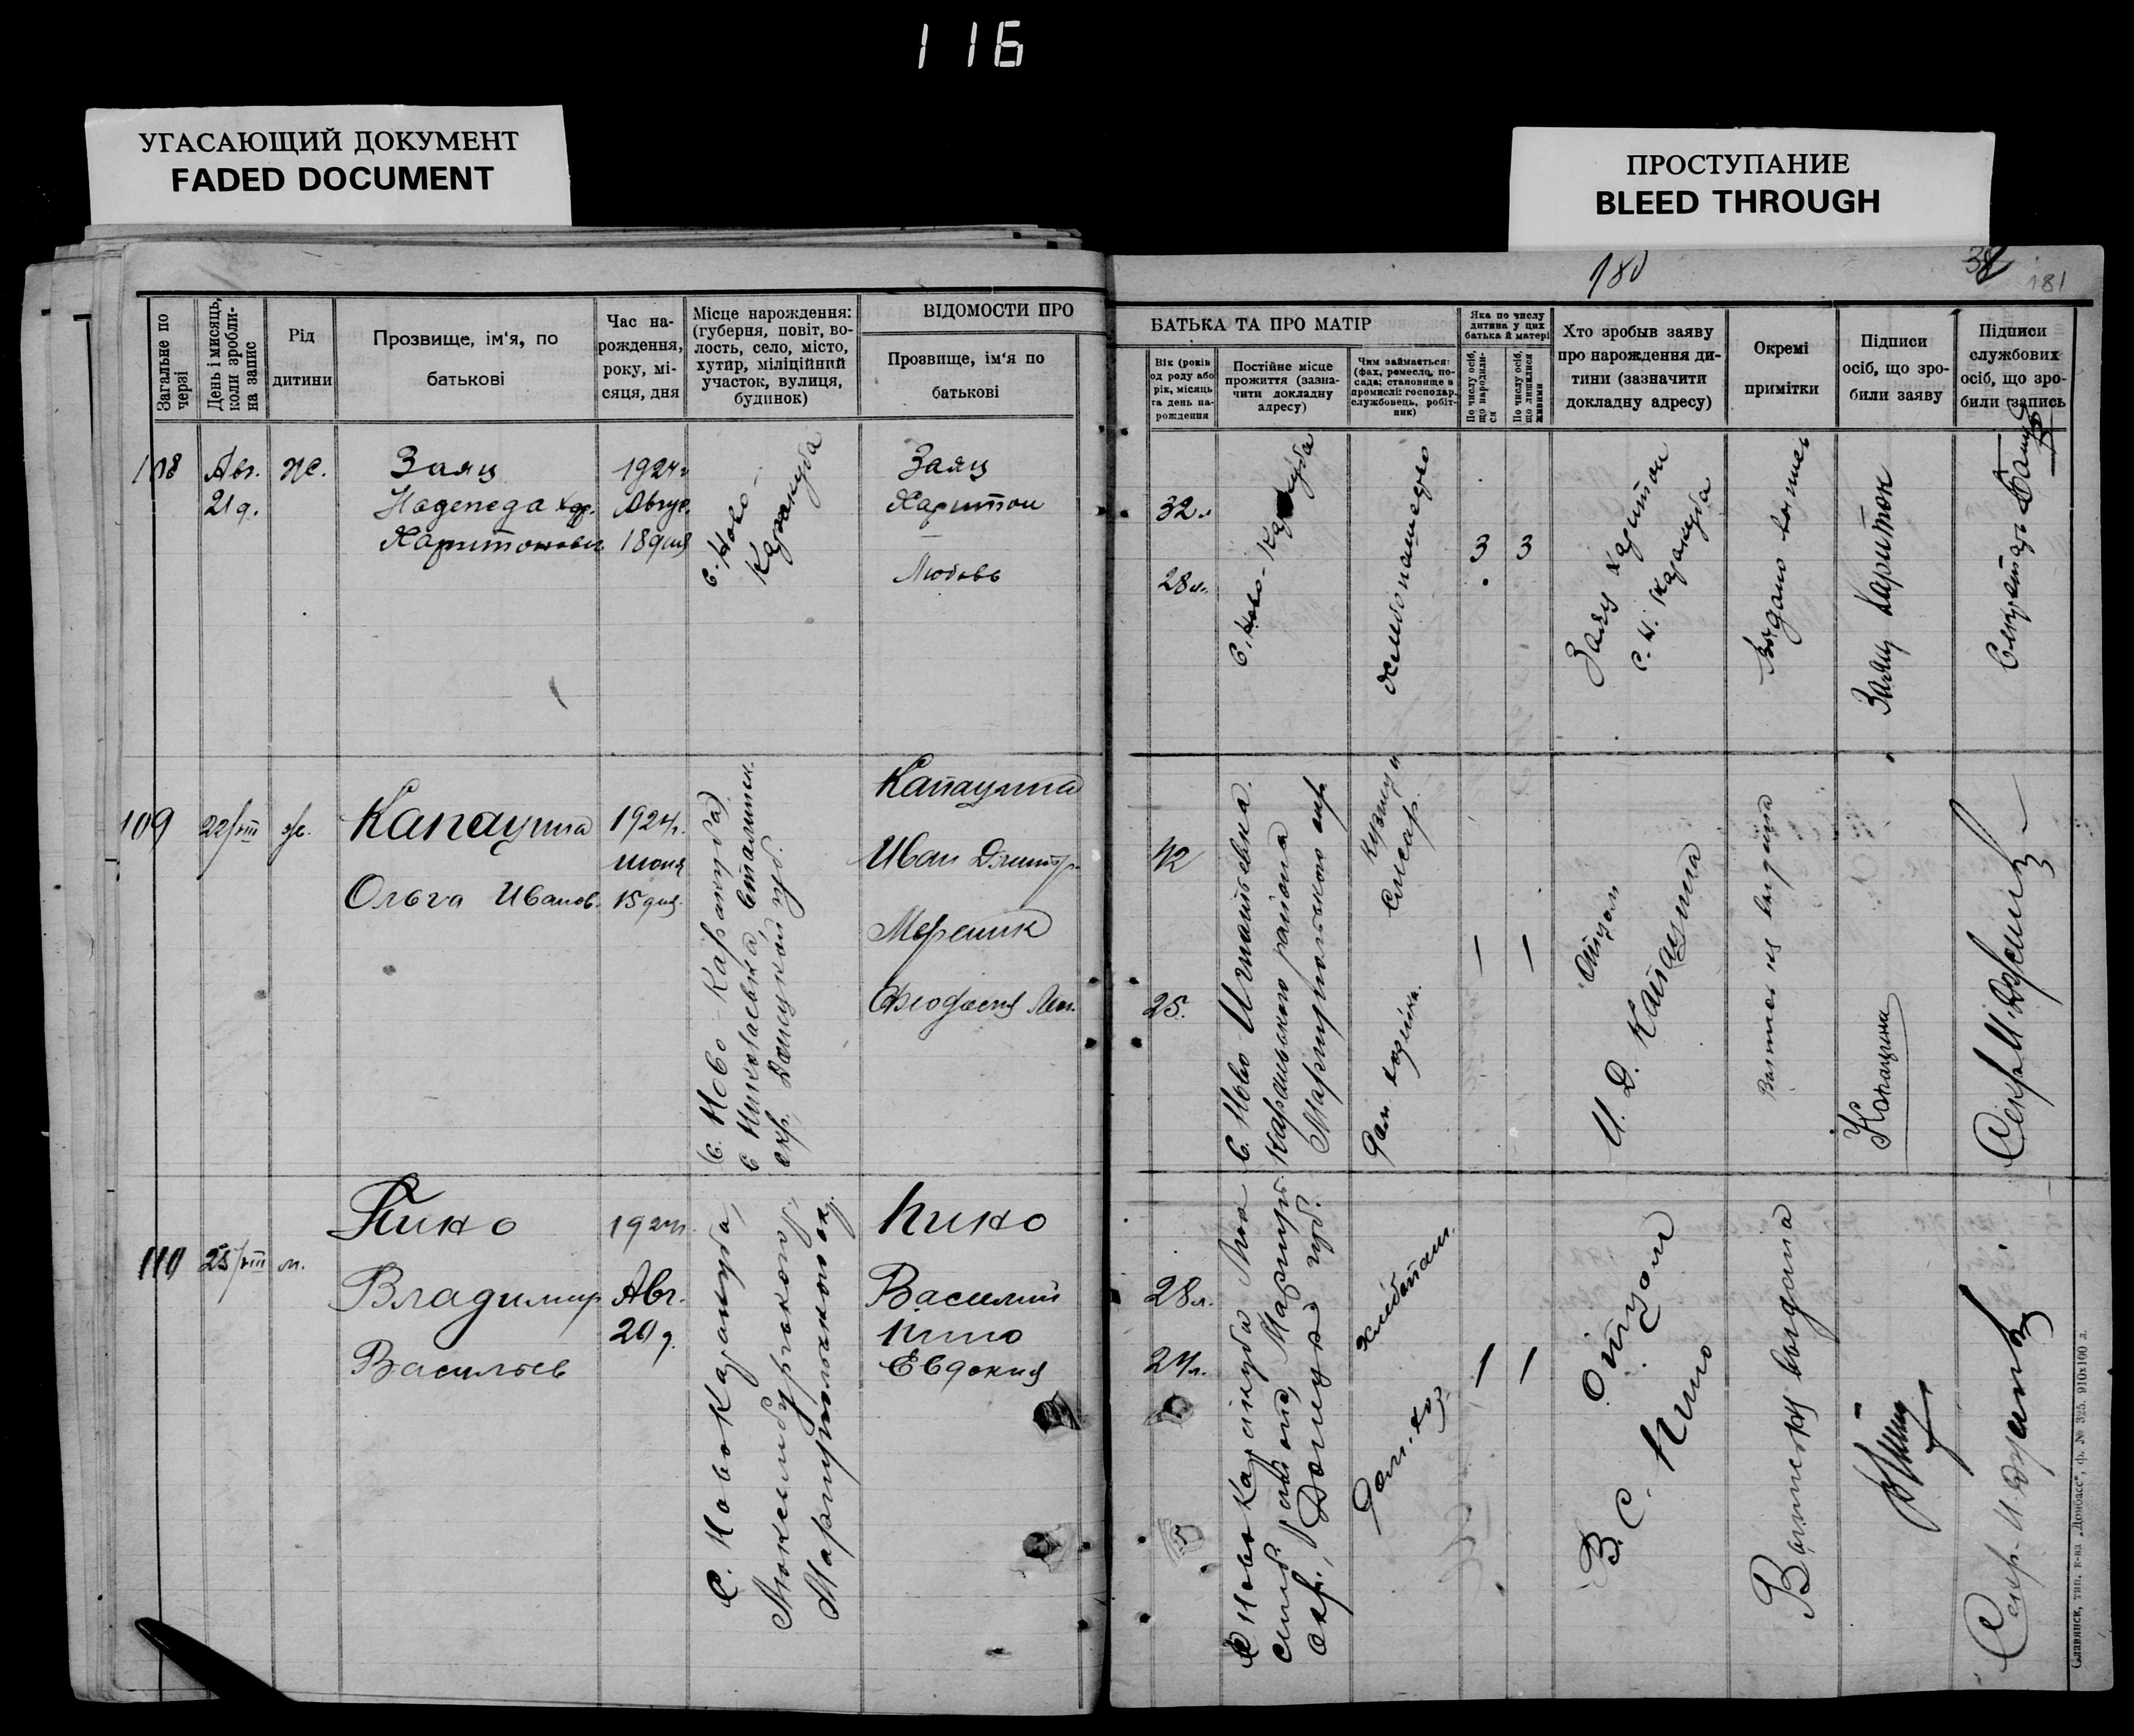 116
УГАСАЮЩИЙ ДОКУМЕНТ
FADED DOCUMENT
ПРОСТУПАНИЕ
BLEED THROUGH
180
181
Загальне по черзі
День і мисяць, коли зробли-на запис
Рід дитини
Прозвище, ім'я, по батькові
Час на-рождення, року, мі-сяця, дня
Місце нарождення: (губерня, повіт, во-лость, село, місто, хутир, міліційний участок, вулиця, будинок)
ВІДОМОСТИ ПРО
Прозвище, ім'я по батькові
БАТЬКА ТА ПРО МАТІР
Вік (років од роду або рік, місяць та день на-рождення
Постійне місце прожиття (зазна-чити докладну адресу)
Чим займається: (фах, ремесло, по-сада; становище в промислі: господар, службовець, робіт-ник)
Яка по числу дитина у цих батька й матері
По числу осіб, що народили-ся
По числу осіб, що лишилися живими
Хто зробыв заяву про нарождення ди-тини (зазначити докладну адресу)
Окремі примітки
Підписи осіб, що зро-били заяву
Підписи службових осіб, що зро-били запись
108
Авг.
21 д.
ж.
Заяц
Надежда
Харитонов
1924 г
Август
18 дня
С. Ново-
Каракуба
Заяц
Харитон
Любовь
32 л
28 л.
С. Ново-Каракуба
хлебопашество
3
3
Заяц Харитон
С. Н. Каракуба
Заяц Харитон
Секретарь
109
22/VIII
ж.
Капацина
Ольга Иванов.
1924 г.
июня
15 дня.
С. Ново-Каракуба
с Николаевка, Сталинск.
окр. Донецкой губ.
Капацина
Иван Дмитр.
Мереник
Феодосия
42
25.
С. Ново Игнатьевка.
Каранского района
Мариупольского окр
кузнец и
слесарь
дом. хозяйка.
1
1
Отцом
И. Д. Капацина
Выпись выдана
Капацина
Секр
110
25/VIII
м.
Кихо
Владимир
Васильев
1924 г.
Авг.
20 д.
С. Ново Каракуба,
Люксембургского
Мариупольского ок.
Кихо
Василий
Кихо
Евдокия
28 л.
24 л.
С Ново Каракуба Люк
Окр., Донецкой губ.
хлебопаш.
Дом. хоз.
1
1
Отцом
В. С. Кихо
Выписка выдана
Секр.
Славянск, тип. к-ва „Донбасс", ф. № 325. 910х100 л.